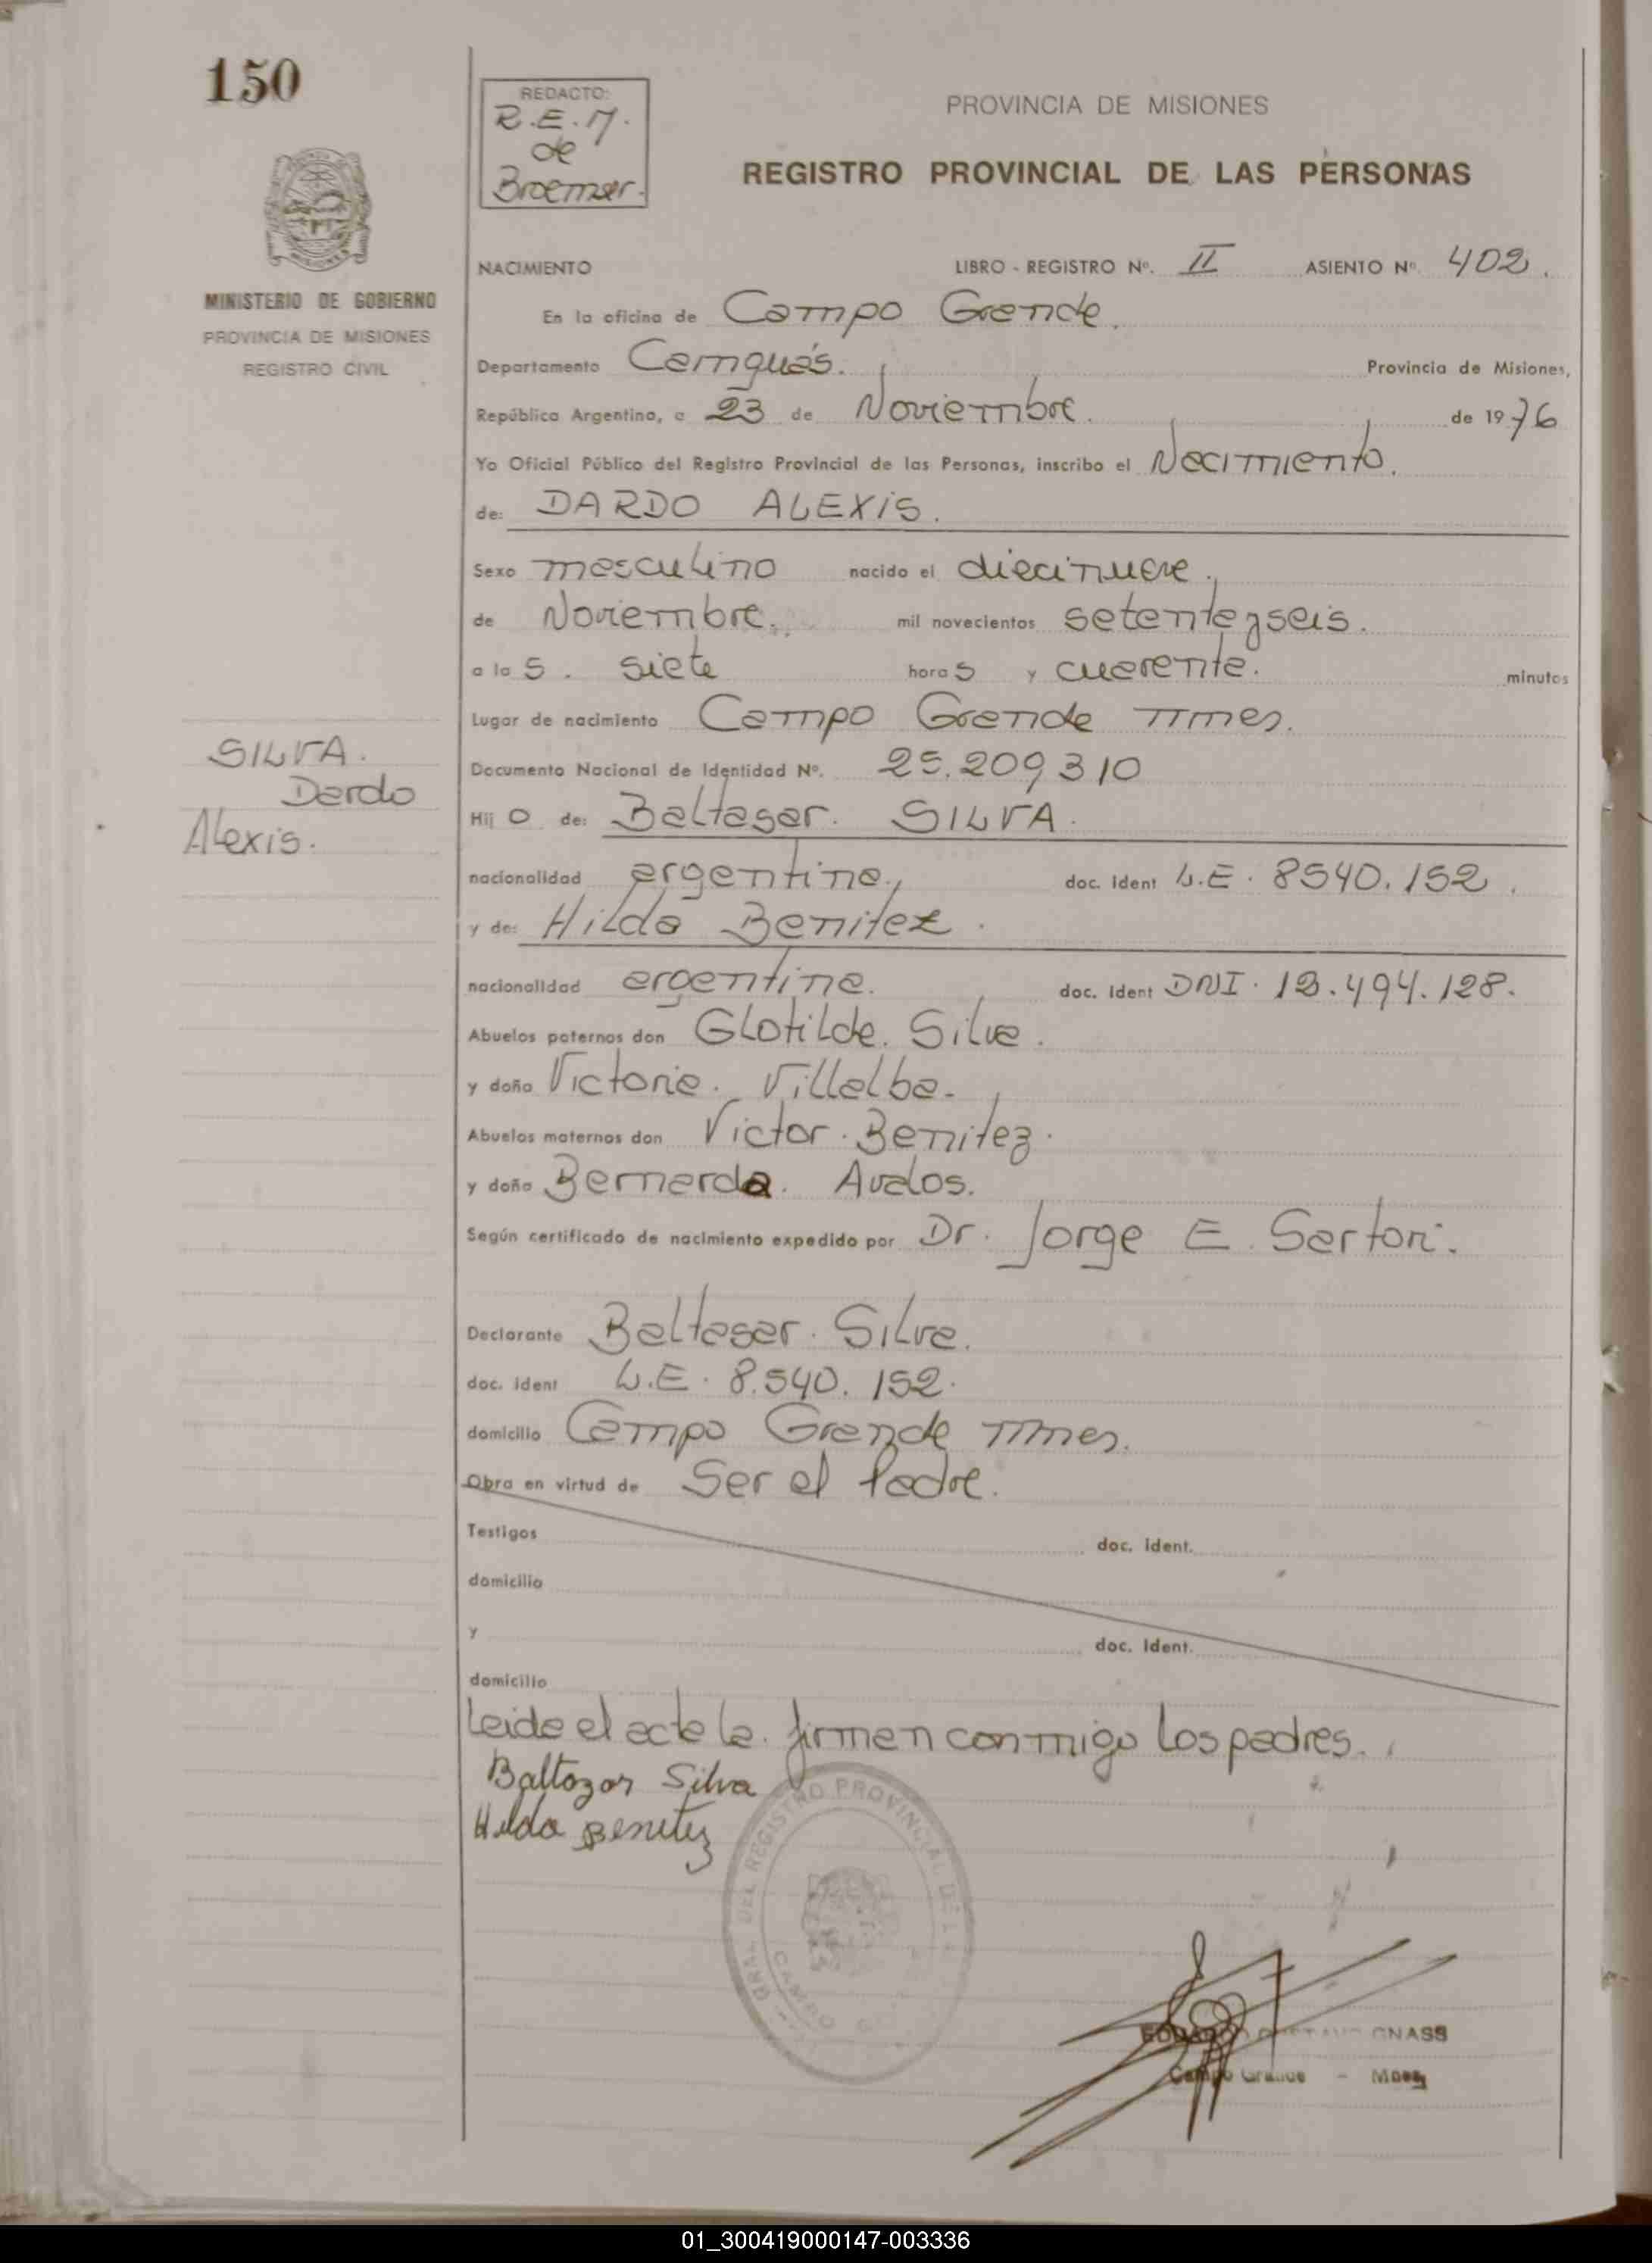 150
REDACTO:
R.E.M.
de
Broemser.
PROVINCIA DE MISIONES
REGISTRO PROVINCIAL DE LAS PERSONAS
MINISTERIO DE GOBIERNO
PROVINCIA DE MISIONES
REGISTRO CIVIL
NACIMIENTO LIBRO - REGISTRO Nº. II ASIENTO Nº 402.
En la oficina de Campo Grande.
Departamento Cainguás. Provincia de Misiones,
República Argentina, a 23 de Noviembre. de 1976
Yo Oficial Público del Registro Provincial de las Personas, inscribo el Nacimiento.
de: DARDO ALEXIS.
Sexo masculino nacido el diecinueve,
de Noviembre. mil novecientos setentayseis.
a las. siete horas y cuarenta. minutos
Lugar de nacimiento Campo Grande Mnes.
Documento Nacional de Identidad Nº. 25.209310
SILVA.
Dardo
Alexis.
Hijo de: Baltasar. SILVA.
nacionalidad argentina, doc. Ident L.E. 8540.152.
y de: Hilda Benitez.
nacionalidad argentina. doc. Ident DNI. 12.494.128.
Abuelos paternos don Glotilde. Silva.
y doña Victoria. Villalba.
Abuelos maternos don Victor. Benitez.
y doña Bernarda. Avalos.
Según certificado de nacimiento expedido por Dr. Jorge E. Sartori.
Declarante Baltasar. Silva.
doc. ident L.E. 8.540.152.
domicilio Campo Grande Mnes.
Obra en virtud de Ser el Padre.
Testigos doc. ident.
domicilio
y doc. Ident.
domicilio
Leida el acta la firman conmigo los padres.
Baltazar Silva
Hilda Benitez
GRAL. DEL REGISTRO PROVINCIAL DE L
CAMPO G
EDUARDO GUSTAVO GNASS
Campo Grande - Mnes
01_300419000147-003336